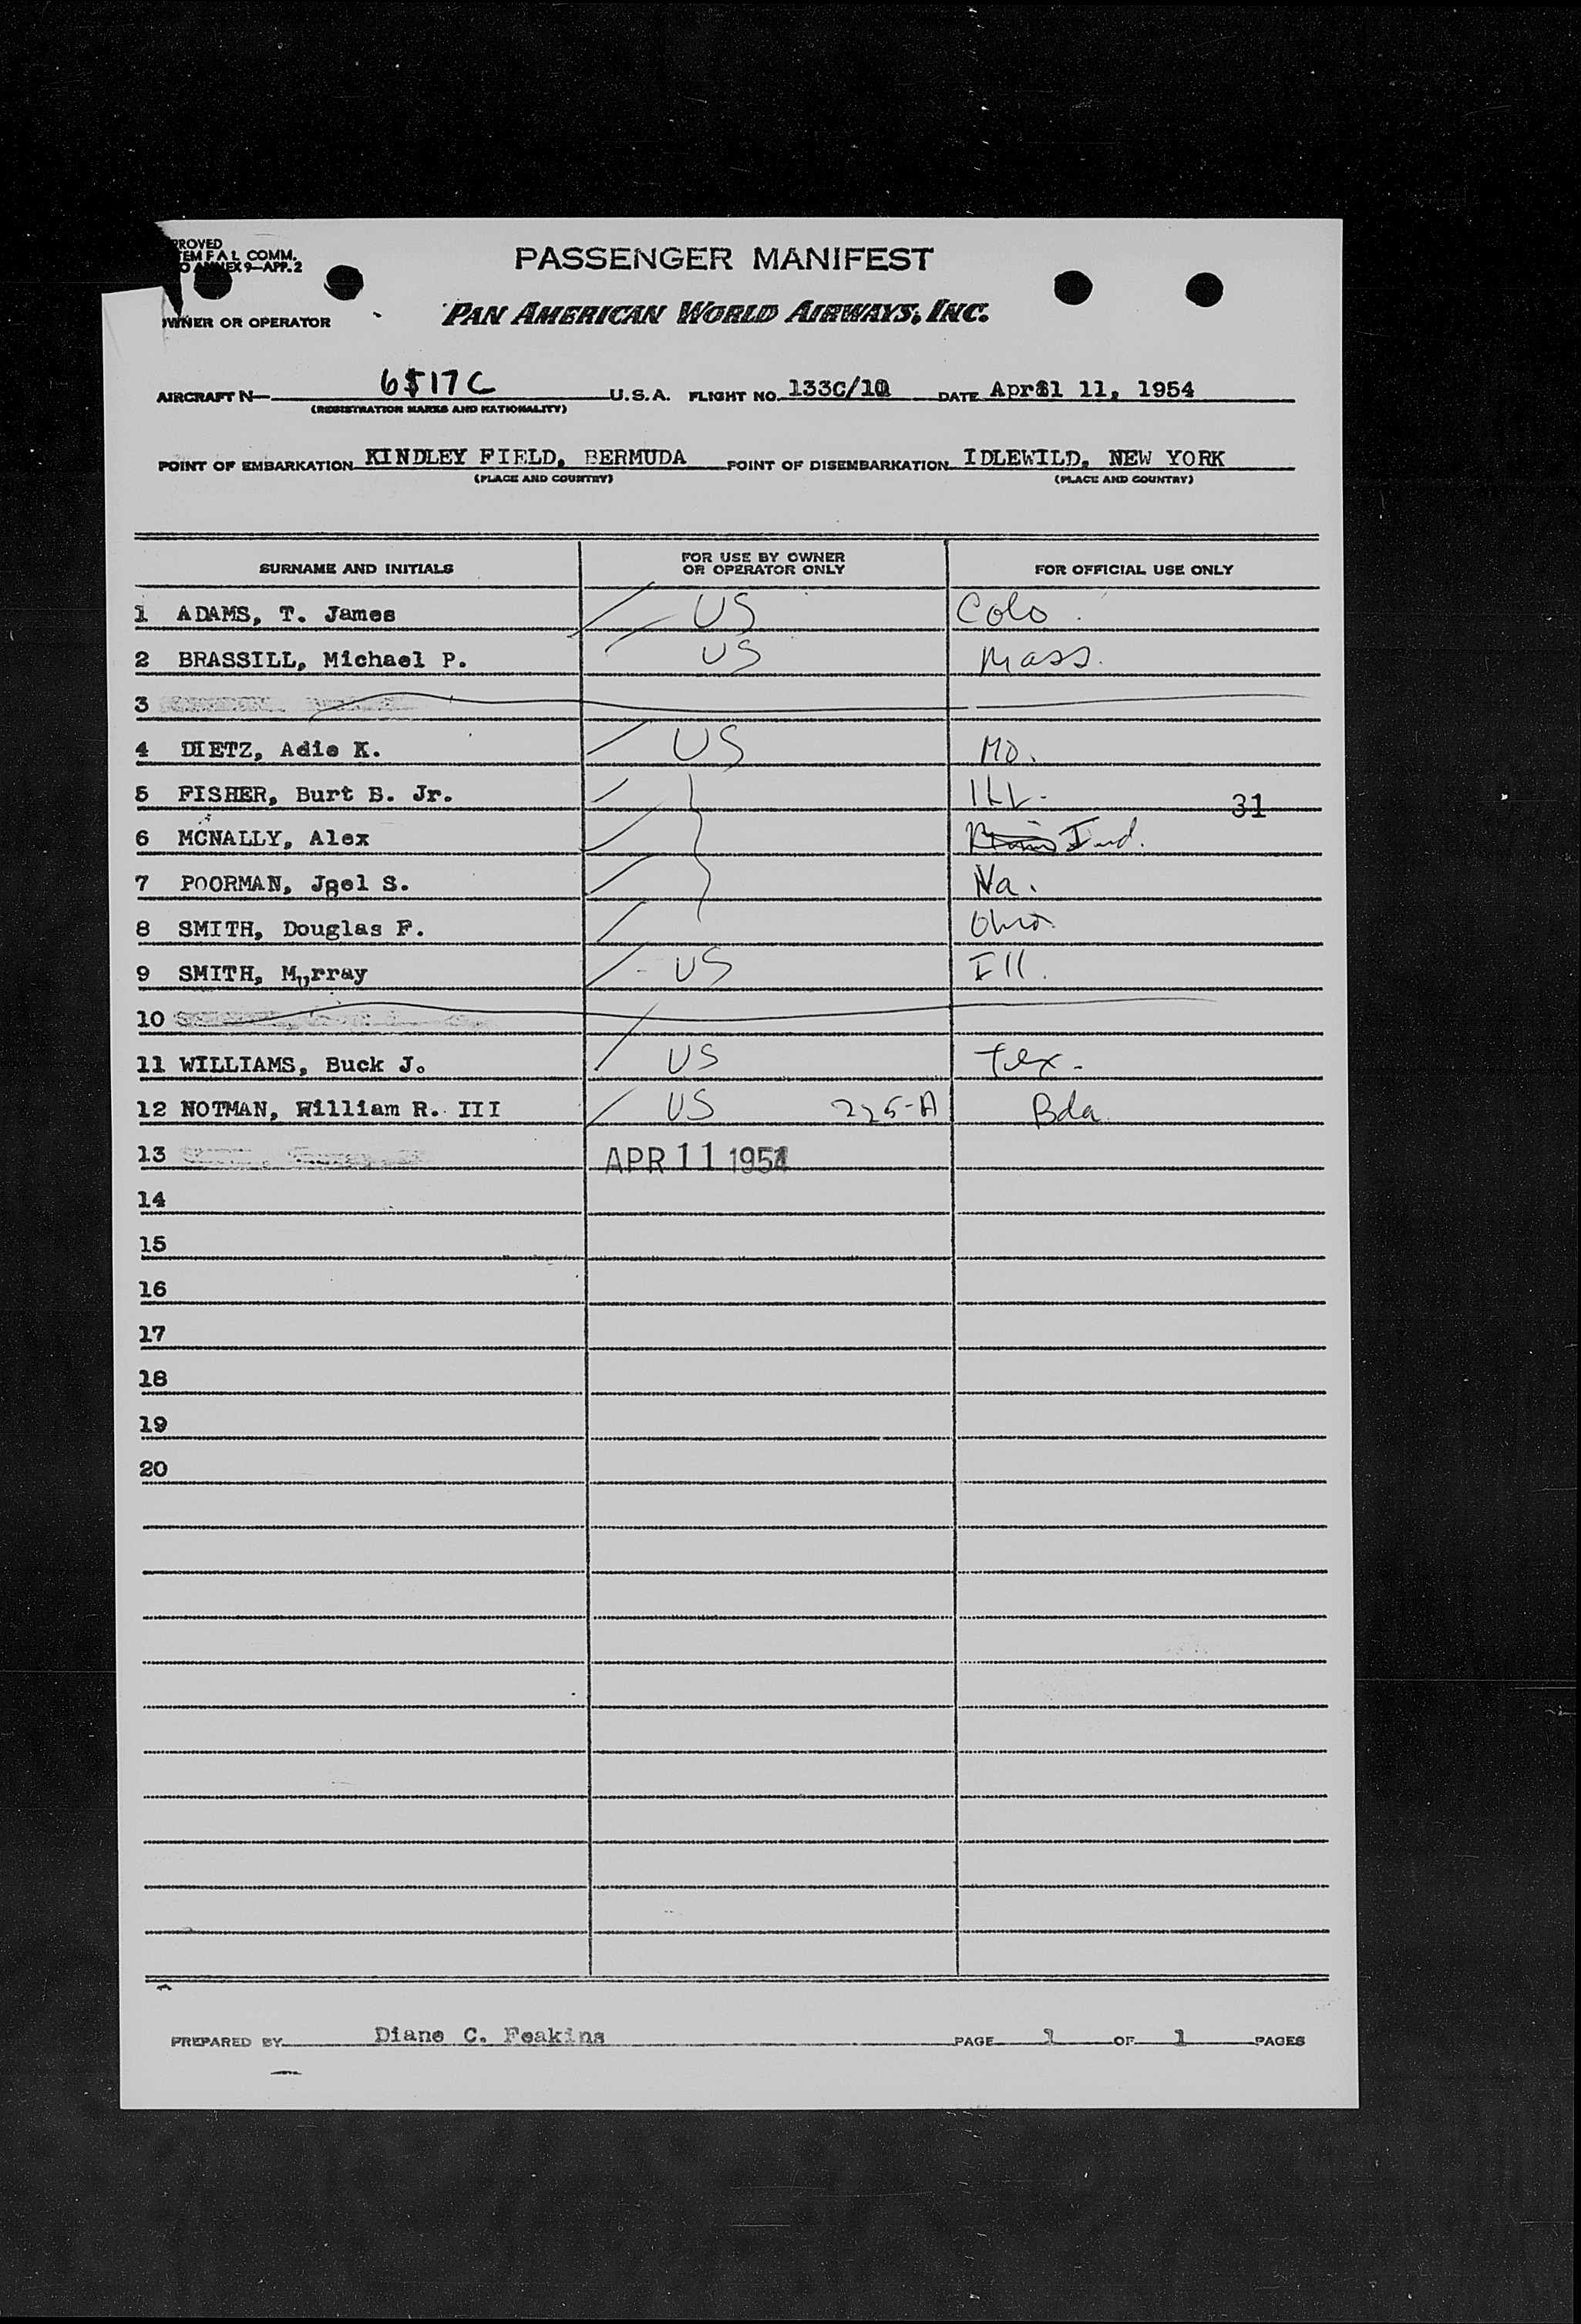 PROVED
TEM F A L COMM.
O ANNEX 9—APP. 2
PASSENGER MANIFEST
OWNER OR OPERATOR
PAN AMERICAN WORLD AIRWAYS, INC.
AIRCRAFT N— 6517C U.S.A. FLIGHT NO. 133C/10 DATE April 11, 1954
(REGISTRATION MARKS AND NATIONALITY)
POINT OF EMBARKATION KINDLEY FIELD, BERMUDA POINT OF DISEMBARKATION IDLEWILD, NEW YORK
(PLACE AND COUNTRY) (PLACE AND COUNTRY)
SURNAME AND INITIALS FOR USE BY OWNER OR OPERATOR ONLY FOR OFFICIAL USE ONLY
1 ADAMS, T. James US Colo.
2 BRASSILL, Michael P. US Mass.
3
4 DIETZ, Adie K. US Mo.
5 FISHER, Burt B. Jr. ILL. 31
6 MCNALLY, Alex Ind.
7 POORMAN, Joel S. Va.
8 SMITH, Douglas F. Ohio
9 SMITH, Murray US Ill.
10
11 WILLIAMS, Buck J. US Tex.
12 NOTMAN, William R. III US 225-A Bda
13 APR 11 1954
14
15
16
17
18
19
20
PREPARED BY Diane C. Feakins PAGE 1 OF 1 PAGES